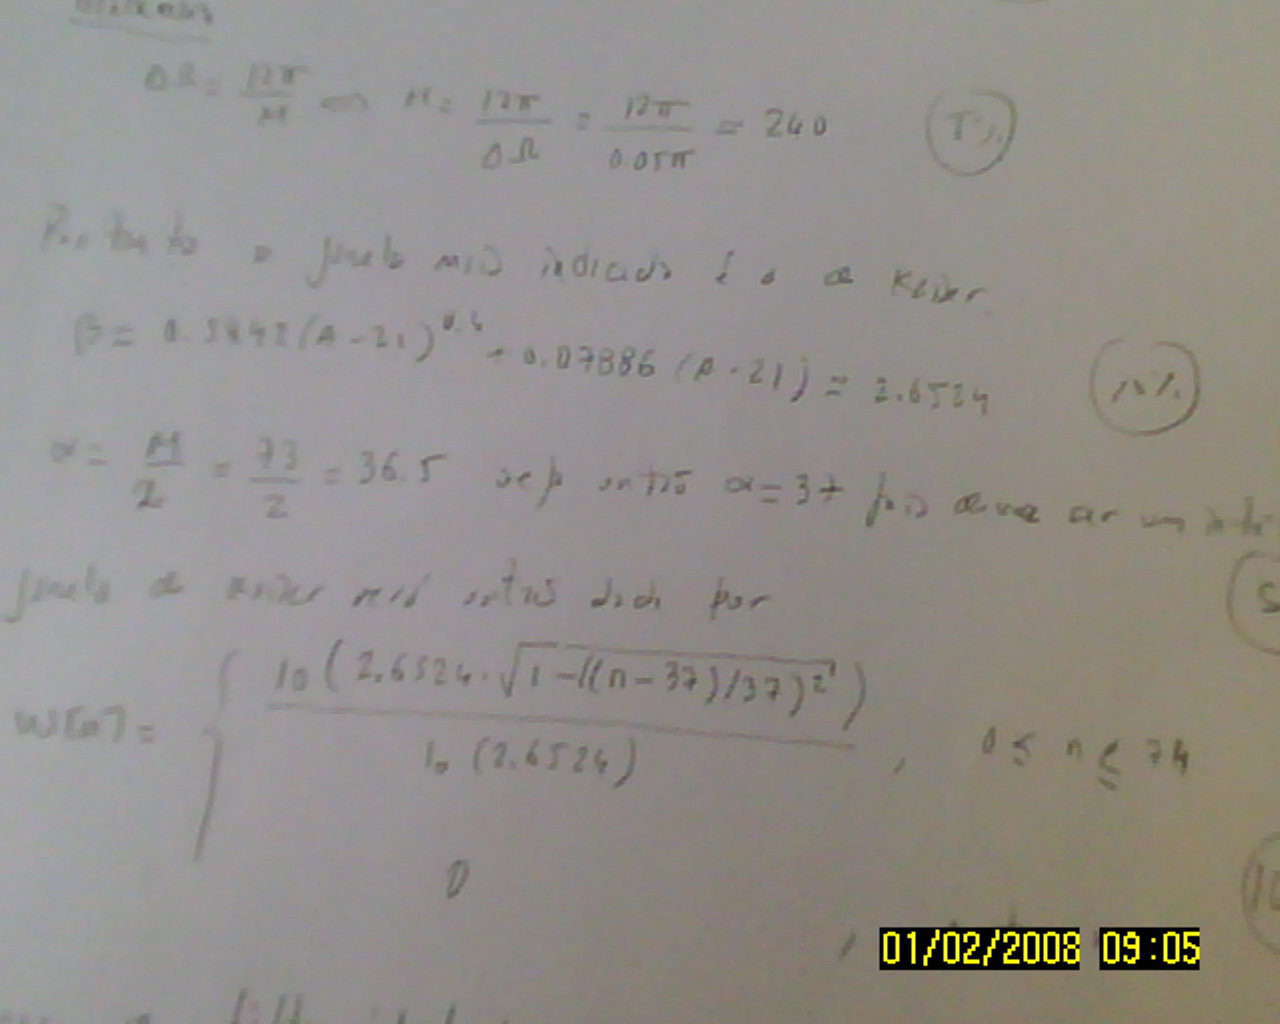 ΔΩ = 12π/M ⇔ M = 12π/ΔΩ = 12π/0.05π = 240 (5%)
Portanto a janela mais indicada é a de Kaiser
β = 0.5842(A-21)^0.4 + 0.07886(A-21) = 2.6524
α = M/2 = 73/2 = 36.5 seja então α = 37 pois deve ser um
janela de Kaiser será então dada por
w[n] = { I0(2.6524·√(1-((n-37)/37)^2)) / I0(2.6524) , 0 ≤ n ≤ 74
0 ,
01/02/2008 09:05